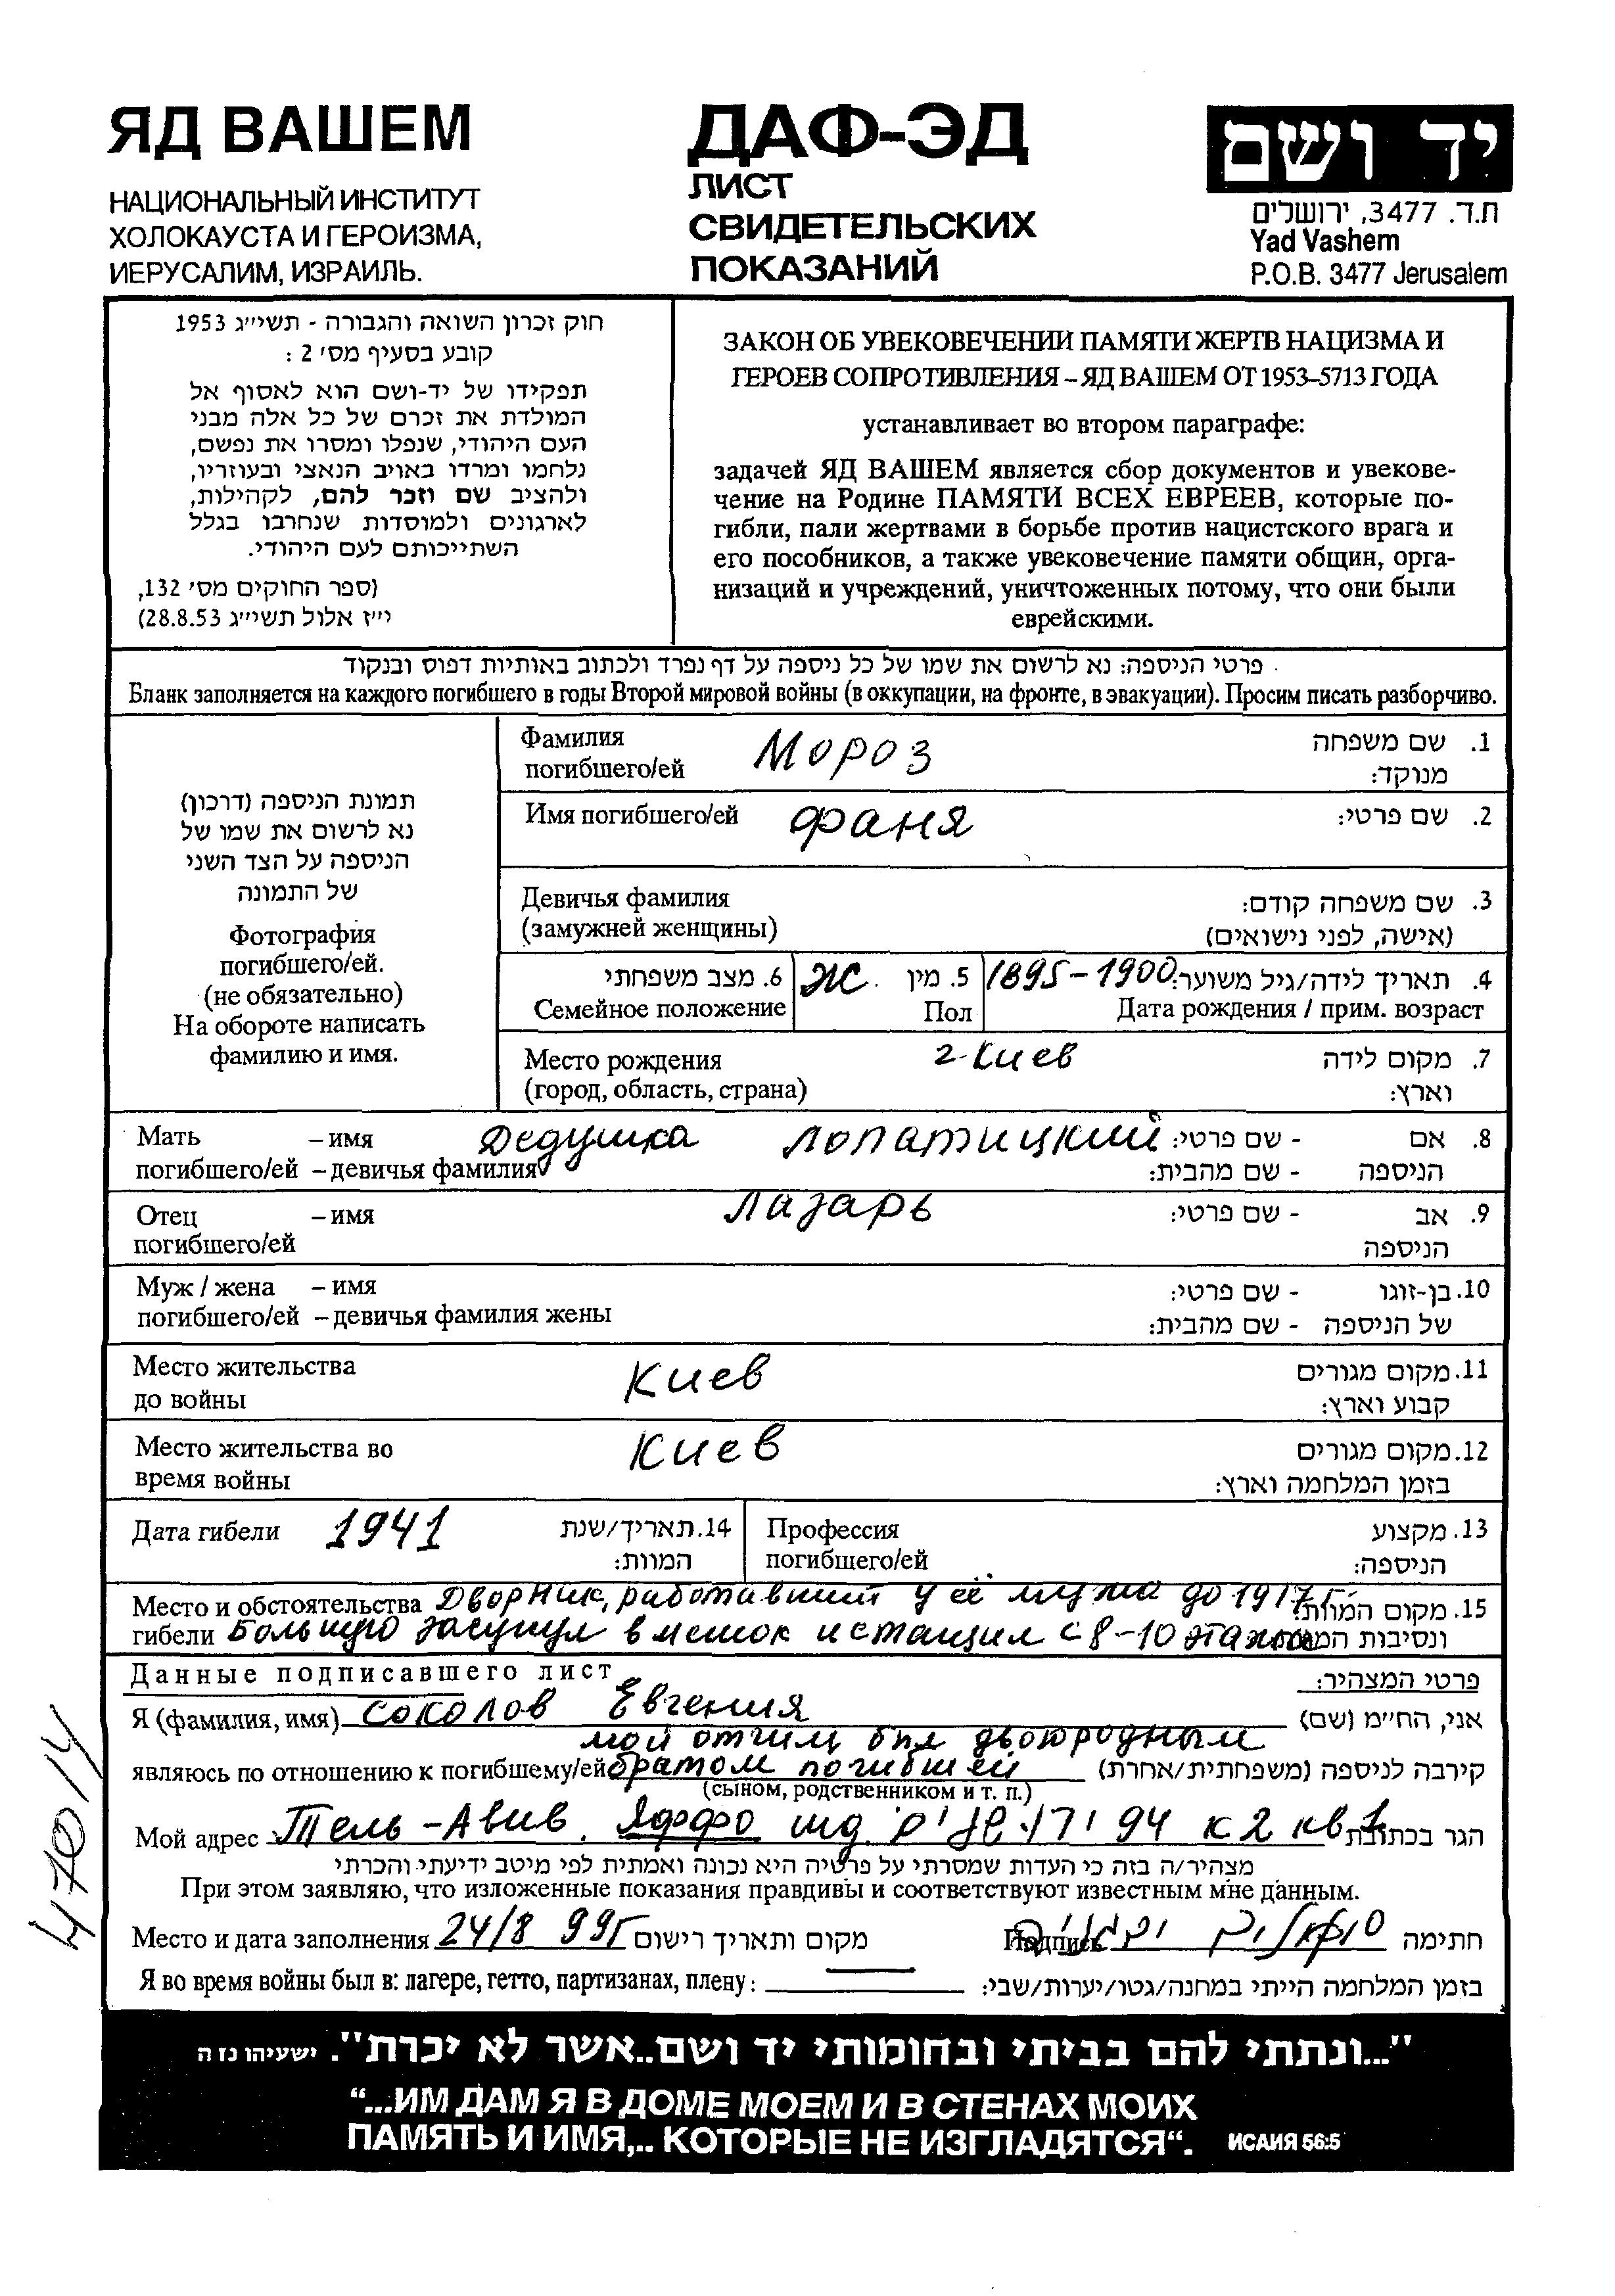 ЯД ВАШЕМ
НАЦИОНАЛЬНЫЙ ИНСТИТУТ
ХОЛОКАУСТА И ГЕРОИЗМА,
ИЕРУСАЛИМ, ИЗРАИЛЬ.
ДАФ-ЭД
ЛИСТ
СВИДЕТЕЛЬСКИХ
ПОКАЗАНИЙ
יד ושם
ת.ד. 3477, ירושלים
Yad Vashem
P.O.B. 3477 Jerusalem
חוק זכרון השואה והגבורה - תשי״ג 1953
קובע בסעיף מס׳ 2 :
תפקידו של יד-ושם הוא לאסוף אל
המולדת את זכרם של כל אלה מבני
העם היהודי, שנפלו ומסרו את נפשם,
נלחמו ומרדו באויב הנאצי ובעוזריו,
ולהציב שם וזכר להם, לקהילות,
לארגונים ולמוסדות שנחרבו בגלל
השתייכותם לעם היהודי.
(ספר החוקים מס׳ 132,
י״ז אלול תשי״ג 28.8.53)
ЗАКОН ОБ УВЕКОВЕЧЕНИИ ПАМЯТИ ЖЕРТВ НАЦИЗМА И
ГЕРОЕВ СОПРОТИВЛЕНИЯ – ЯД ВАШЕМ ОТ 1953–5713 ГОДА
устанавливает во втором параграфе:
задачей ЯД ВАШЕМ является сбор документов и увекове-
чение на Родине ПАМЯТИ ВСЕХ ЕВРЕЕВ, которые по-
гибли, пали жертвами в борьбе против нацистского врага и
его пособников, а также увековечение памяти общин, орга-
низаций и учреждений, уничтоженных потому, что они были
еврейскими.
פרטי הניספה: נא לרשום את שמו של כל ניספה על דף נפרד ולכתוב באותיות דפוס ובנקוד
Бланк заполняется на каждого погибшего в годы Второй мировой войны (в оккупации, на фронте, в эвакуации). Просим писать разборчиво.
תמונת הניספה (דרכון)
נא לרשום את שמו של
הניספה על הצד השני
של התמונה
Фотография
погибшего/ей.
(не обязательно)
На обороте написать
фамилию и имя.
Фамилия Мороз 1. שם משפחה
погибшего/ей מנוקד:
Имя погибшего/ей Фаня 2. שם פרטי:
Девичья фамилия 3. שם משפחה קודם:
(замужней женщины) (אישה, לפני נישואים)
6. מצב משפחתי Ж 5. מין 1895-1900 4. תאריך לידה/גיל משוער:
Семейное положение Пол Дата рождения / прим. возраст
Место рождения г. Киев 7. מקום לידה
(город, область, страна) וארץ:
Мать – имя Дедушка Лопатицкий - שם פרטי: 8. אם
погибшего/ей – девичья фамилия - שם מהבית: הניספה
Отец – имя Лазарь - שם פרטי: 9. אב
погибшего/ей הניספה
Муж / жена – имя - שם פרטי: 10. בן-זוגו
погибшего/ей – девичья фамилия жены - שם מהבית: של הניספה
Место жительства Киев 11. מקום מגורים
до войны קבוע וארץ:
Место жительства во Киев 12. מקום מגורים
время войны בזמן המלחמה וארץ:
Дата гибели 1941 14. תאריך/שנת Профессия 13. מקצוע
המוות: погибшего/ей הניספה:
Место и обстоятельства Дворник, работавший у её мужа до 1917 г. 15. מקום המוות
гибели Большую засунул в мешок и стащил с 8-10 этажа ונסיבות
Данные подписавшего лист פרטי המצהיר:
Я (фамилия, имя) Соколов Евгения אני, החי״מ (שם)
мой отчим был двоюродным
являюсь по отношению к погибшему/ей братом погибшей קירבה לניספה (משפחתית/אחרת)
(сыном, родственником и т. п.)
Мой адрес Тель-Авив. Яффо 94 к 2 кв 1 הגר בכתובת
מצהיר/ה בזה כי העדות שמסרתי על פרטיה היא נכונה ואמתית לפי מיטב ידיעתי והכרתי
При этом заявляю, что изложенные показания правдивы и соответствуют известным мне данным.
Место и дата заполнения 24/8 99г מקום ותאריך רישום Подпись חתימה
Я во время войны был в: лагере, гетто, партизанах, плену: בזמן המלחמה הייתי במחנה/גטו/יערות/שבי:
47014
"...ונתתי להם בביתי ובחומותי יד ושם..אשר לא יכרת". ישעיהו נז ה
“...ИМ ДАМ Я В ДОМЕ МОЕМ И В СТЕНАХ МОИХ
ПАМЯТЬ И ИМЯ,.. КОТОРЫЕ НЕ ИЗГЛАДЯТСЯ“. ИСАИЯ 56:5